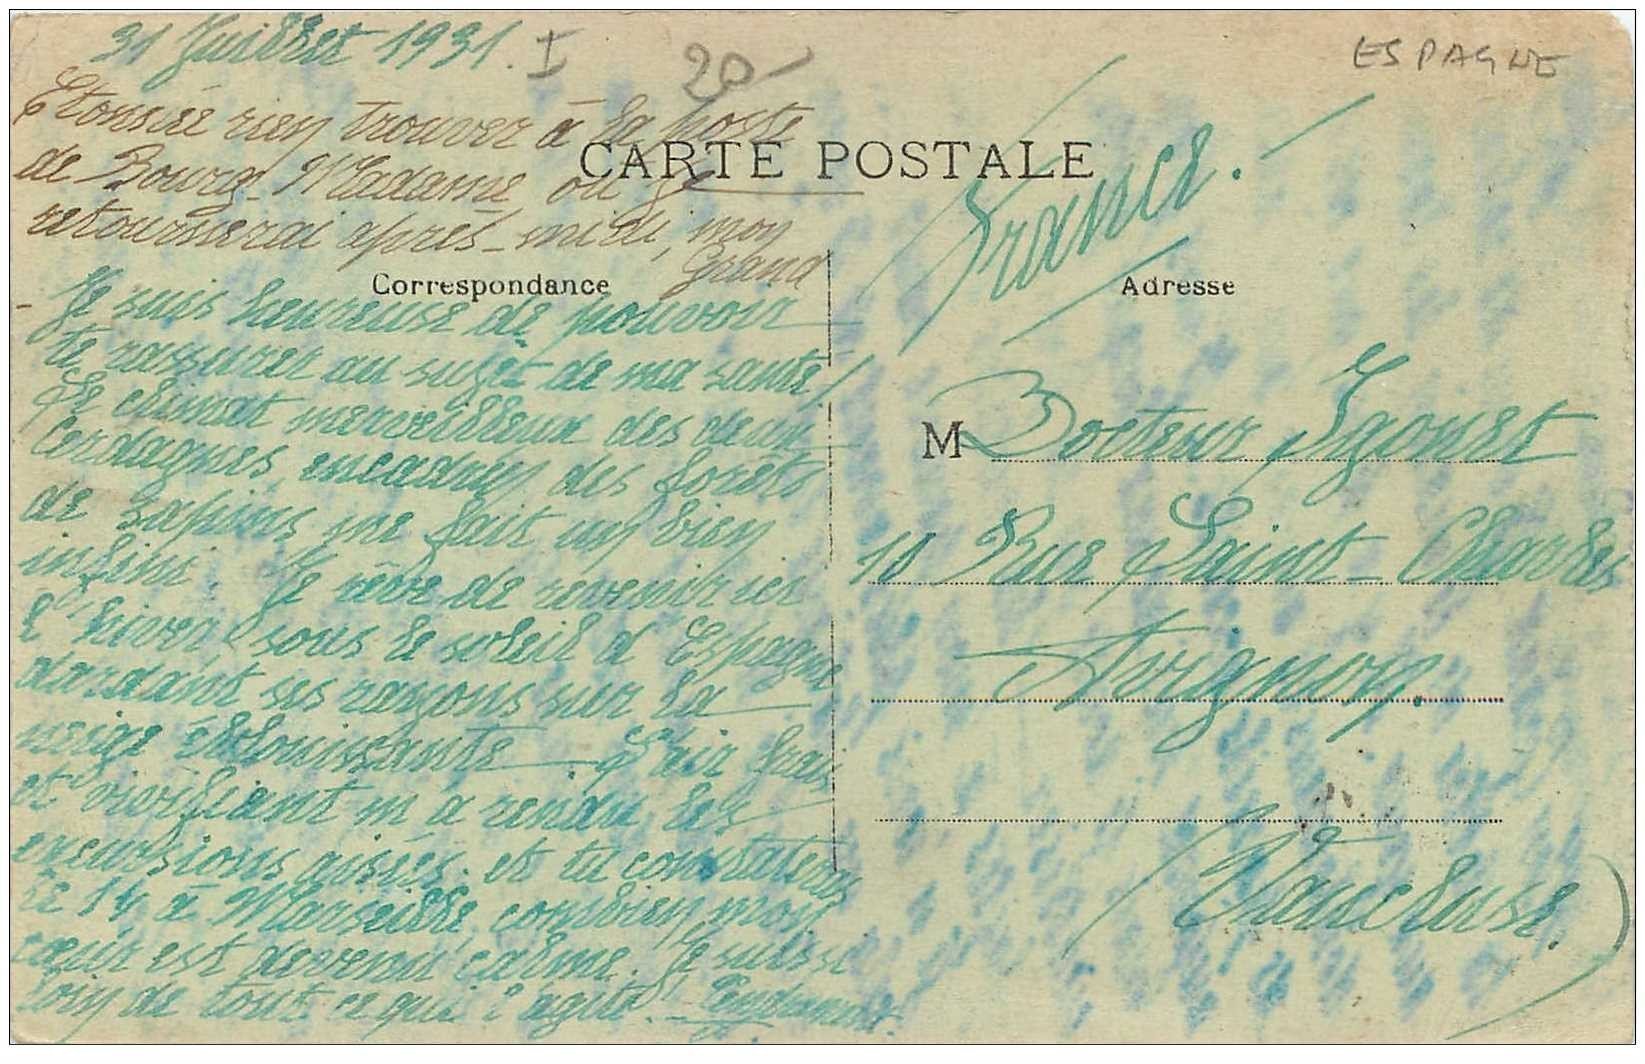 31 Juillet 1931. I 20
ESPAGNE
Etonnée rien trouver à la poste
de Bourg-Madame où je
retournerai après-midi, mon
Grand
CARTE POSTALE
Correspondance
Je suis heureuse de pouvoir
te rassurer au sujet de ma santé!
Le climat merveilleux des deux
Cerdagnes, encadrées des forêts
de sapins me fait un bien
infini. Je rêve de revenir ici
l'hiver sous le soleil d'Espagne
dardant ses rayons sur la
neige éblouissante - L'air frais
et vivifiant m'a rendu les
excursions aisées. et tu constateras
le 14 à Marseille, combien mon
cœur est devenu calme. Je suis si
loin de tout ce qui l'agite! - Tendrement.
France. -
Adresse
M Docteur Ygonet
10 Rue Saint-Charles
Avignon.
(Vaucluse.)